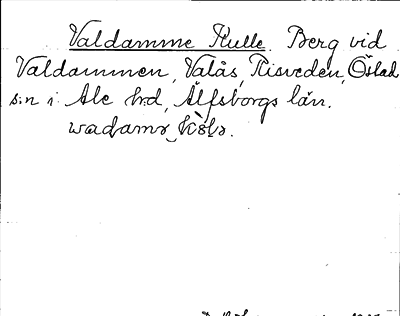 Valdamme Kulle. Berg vid
Valdammen, Valås, Risveden, Östad
s:n i Ale hrd, Älfsborgs län.